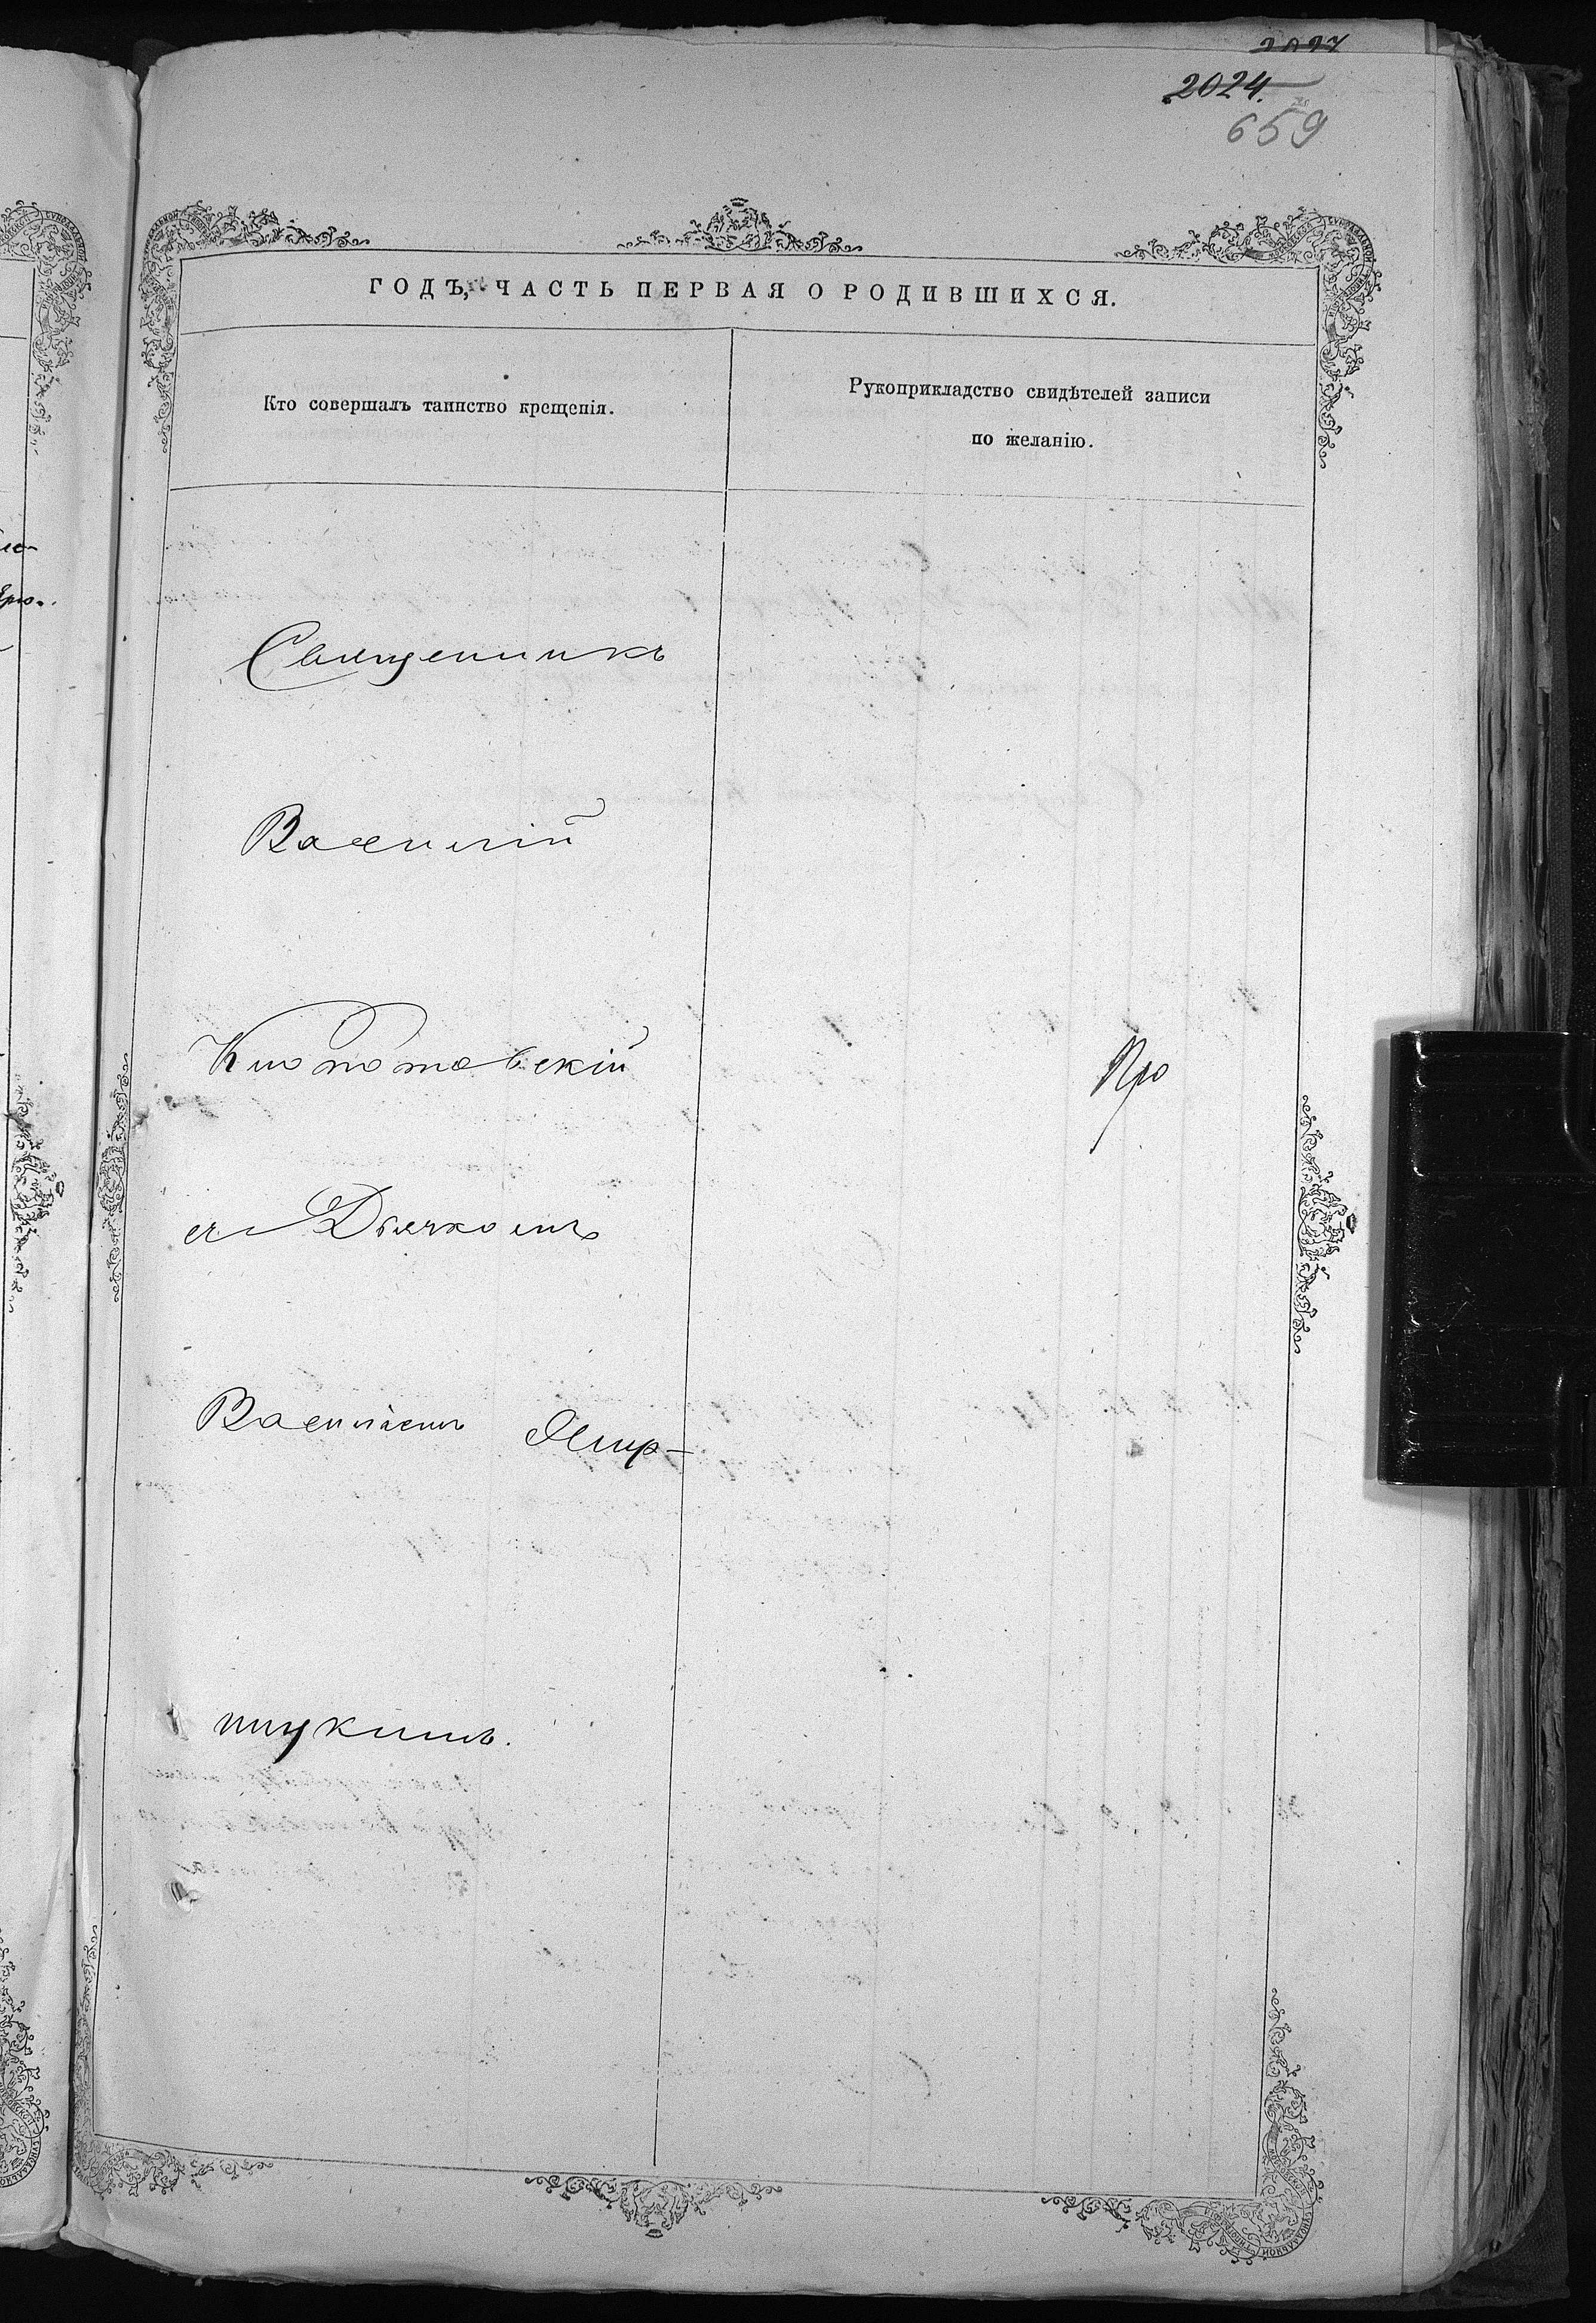 2027
2024.
659
ГОДЪ, ЧАСТЬ ПЕРВАЯ О РОДИВШИХСЯ.
Кто совершалъ таинство крещенія.
Рукоприкладство свидѣтелей записи
по желанію.
Священникъ
Василій
Про
съ Дьячкомъ
Василіемъ